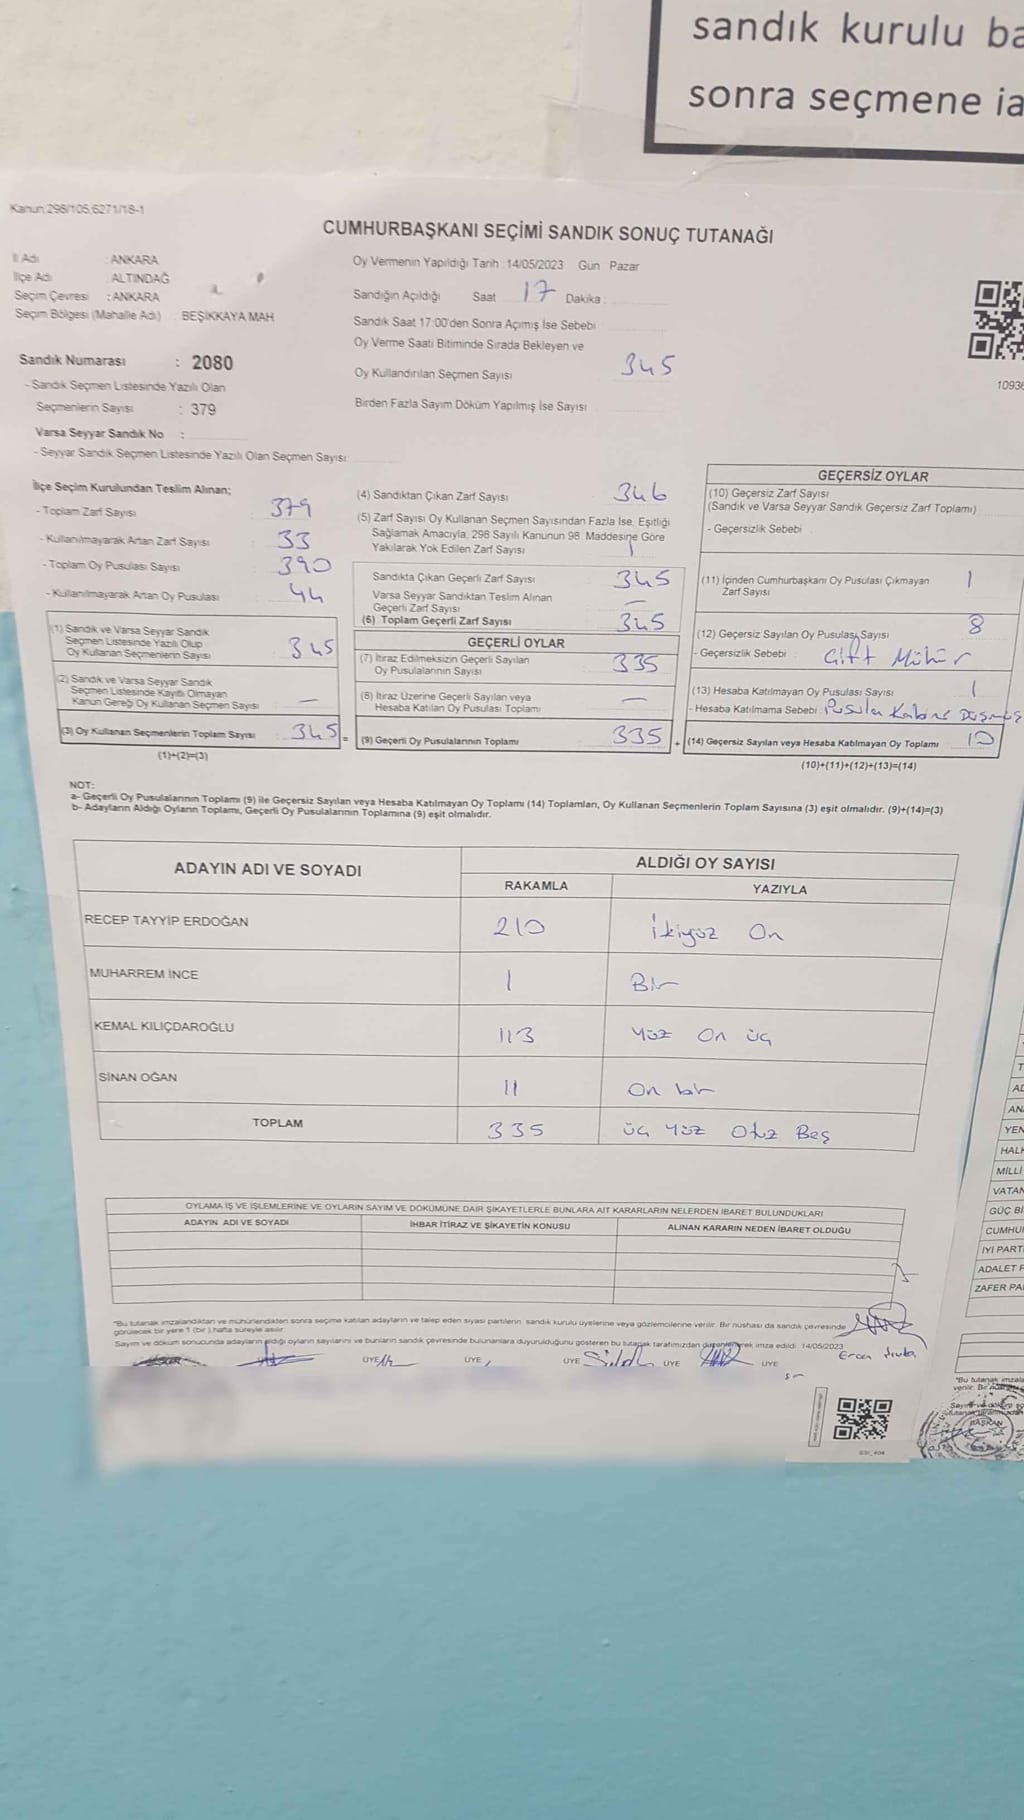 sandık kurulu ba
sonra seçmene ia
Kanun 298/105,6271/18-1
CUMHURBAŞKANI SEÇİMİ SANDIK SONUÇ TUTANAĞI
İl Adı : ANKARA
İlçe Adı : ALTINDAĞ
Seçim Çevresi : ANKARA
Seçim Bölgesi (Mahalle Adı) : BEŞİKKAYA MAH
Sandık Numarası : 2080
- Sandık Seçmen Listesinde Yazılı Olan
Seçmenlerin Sayısı : 379
Varsa Seyyar Sandık No :
- Seyyar Sandık Seçmen Listesinde Yazılı Olan Seçmen Sayısı:
Oy Vermenin Yapıldığı Tarih :14/05/2023 Gün Pazar
Sandığın Açıldığı Saat 17 Dakika :
Sandık Saat 17:00'den Sonra Açımış İse Sebebi :
Oy Verme Saati Bitiminde Sırada Bekleyen ve
Oy Kullandırılan Seçmen Sayısı 345
Birden Fazla Sayım Döküm Yapılmış İse Sayısı :
10936
İlçe Seçim Kurulundan Teslim Alınan;
- Toplam Zarf Sayısı : 379
- Kullanılmayarak Artan Zarf Sayısı : 33
- Toplam Oy Pusulası Sayısı : 390
- Kullanılmayarak Artan Oy Pusulası : 44
(1) Sandık ve Varsa Seyyar Sandık
Seçmen Listesinde Yazılı Olup
Oy Kullanan Seçmenlerin Sayısı : 345
(2) Sandık ve Varsa Seyyar Sandık
Seçmen Listesinde Kayıtlı Olmayan
Kanun Gereği Oy Kullanan Seçmen Sayısı : —
(3) Oy Kullanan Seçmenlerin Toplam Sayısı : 345 =
(1)+(2)=(3)
(4) Sandıktan Çıkan Zarf Sayısı 346
(5) Zarf Sayısı Oy Kullanan Seçmen Sayısından Fazla İse, Eşitliği
Sağlamak Amacıyla, 298 Sayılı Kanunun 98. Maddesine Göre
Yakılarak Yok Edilen Zarf Sayısı 1
Sandıkta Çıkan Geçerli Zarf Sayısı 345
Varsa Seyyar Sandıktan Teslim Alınan
Geçerli Zarf Sayısı —
(6) Toplam Geçerli Zarf Sayısı 345
GEÇERLİ OYLAR
(7) İtiraz Edilmeksizin Geçerli Sayılan
Oy Pusulalarının Sayısı 335
(8) İtiraz Üzerine Geçerli Sayılan veya
Hesaba Katılan Oy Pusulası Toplamı —
(9) Geçerli Oy Pusulalarının Toplamı 335 +
GEÇERSİZ OYLAR
(10) Geçersiz Zarf Sayısı
(Sandık ve Varsa Seyyar Sandık Geçersiz Zarf Toplamı)
- Geçersizlik Sebebi
(11) İçinden Cumhurbaşkanı Oy Pusulası Çıkmayan
Zarf Sayısı 1
(12) Geçersiz Sayılan Oy Pusulası Sayısı 8
- Geçersizlik Sebebi : Çift Mühür
(13) Hesaba Katılmayan Oy Pusulası Sayısı 1
- Hesaba Katılmama Sebebi : Pusula Kabine Düşmüş
(14) Geçersiz Sayılan veya Hesaba Katılmayan Oy Toplamı 10
(10)+(11)+(12)+(13)=(14)
NOT:
a- Geçerli Oy Pusulalarının Toplamı (9) ile Geçersiz Sayılan veya Hesaba Katılmayan Oy Toplamı (14) Toplamları, Oy Kullanan Seçmenlerin Toplam Sayısına (3) eşit olmalıdır. (9)+(14)=(3)
b- Adayların Aldığı Oyların Toplamı, Geçerli Oy Pusulalarının Toplamına (9) eşit olmalıdır.
ADAYIN ADI VE SOYADI ALDIĞI OY SAYISI
RAKAMLA YAZIYLA
RECEP TAYYİP ERDOĞAN 210 İkiyüz On
MUHARREM İNCE 1 Bir
KEMAL KILIÇDAROĞLU 113 Yüz On üç
SİNAN OĞAN 11 On bir
TOPLAM 335 üç Yüz Otuz Beş
OYLAMA İŞ VE İŞLEMLERİNE VE OYLARIN SAYIM VE DÖKÜMÜNE DAİR ŞİKAYETLERLE BUNLARA AİT KARARLARIN NELERDEN İBARET BULUNDUKLARI
ADAYIN ADI VE SOYADI İHBAR İTİRAZ VE ŞİKAYETİN KONUSU ALINAN KARARIN NEDEN İBARET OLDUĞU
"Bu tutanak imzalandıktan ve mühürlendikten sonra seçime katılan adayların ve talep eden siyasi partilerin sandık kurulu üyelerine veya gözlemcilerine verilir. Bir nüshası da sandık çevresinde
görülecek bir yere 1 (bir) hafta süreyle asılır.
Sayım ve döküm sonucunda adayların aldığı oyların sayılarını ve bunların sandık çevresinde bulunanlara duyurulduğunu gösteren bu tutanak tarafımızdan düzenlenerek imza edildi 14/05/2023
ÜYE ÜYE ÜYE ÜYE ÜYE
AD
AN
YEN
HALK
MİLLİ
VATAN
GÜÇ Bİ
CUMHU
İYİ PARTİ
ADALET P
ZAFER PA
"Bu tutanak imzala
verilir. Bir
BAŞKAN